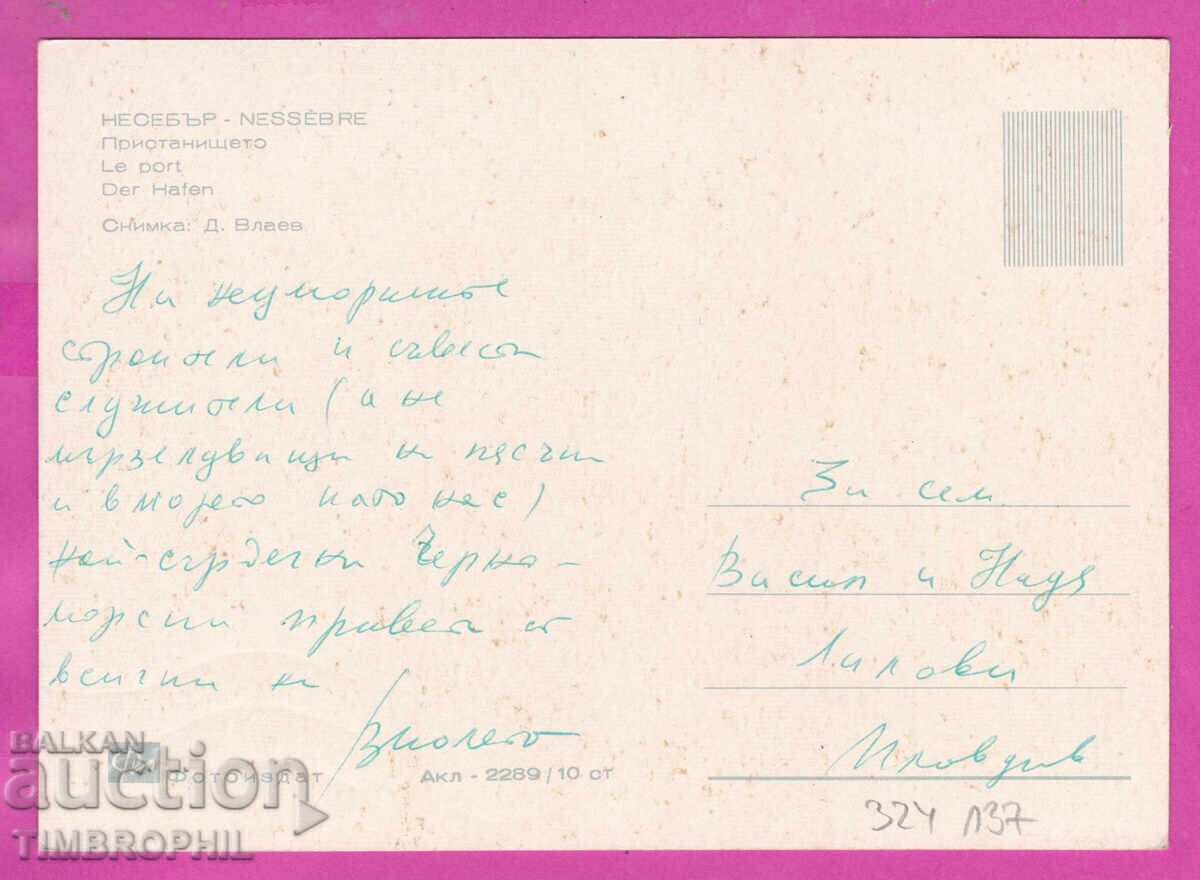 НЕСЕБЪР - NESSÈBRE
Пристанището
Le port
Der Hafen
Снимка: Д. Влаев
На неуморимите
строители и съвестни
служители (а не
мързелуващи на пясъка
и в морето като нас)
най-сърдечни Черно-
морски привети от
всички ни
Виолета
За сем.
Васил и Надя
Лилови
Пловдив
Фотоиздат
Акл - 2289/10 ст
324 Л37
BALKAN
auction
TIMBROPHIL